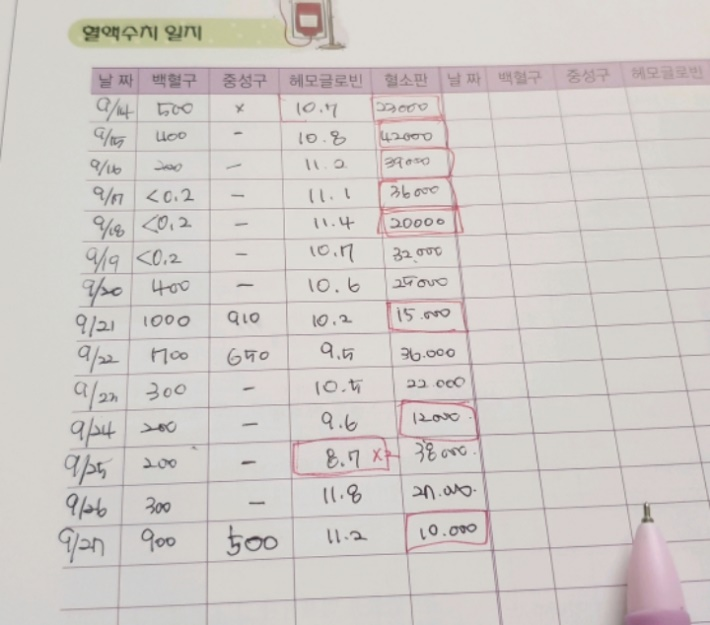 혈액수치 일지
날 짜 백혈구 중성구 헤모글로빈 혈소판 날 짜 백혈구 중성구 헤모글로빈
9/14 500 x 10.7 23000
9/15 400 - 10.8 42000
9/16 200 - 11.2 39000
9/17 <0.2 - 11.1 36000
9/18 <0.2 - 11.4 20000
9/19 <0.2 - 10.7 32.000
9/20 400 - 10.6 25000
9/21 1000 910 10.2 15.000
9/22 1700 650 9.5 36.000
9/23 300 - 10.5 22.000
9/24 200 - 9.6 12000.
9/25 200 - 8.7 x2 38000.
9/26 300 - 11.8 27.000.
9/27 900 500 11.2 10.000